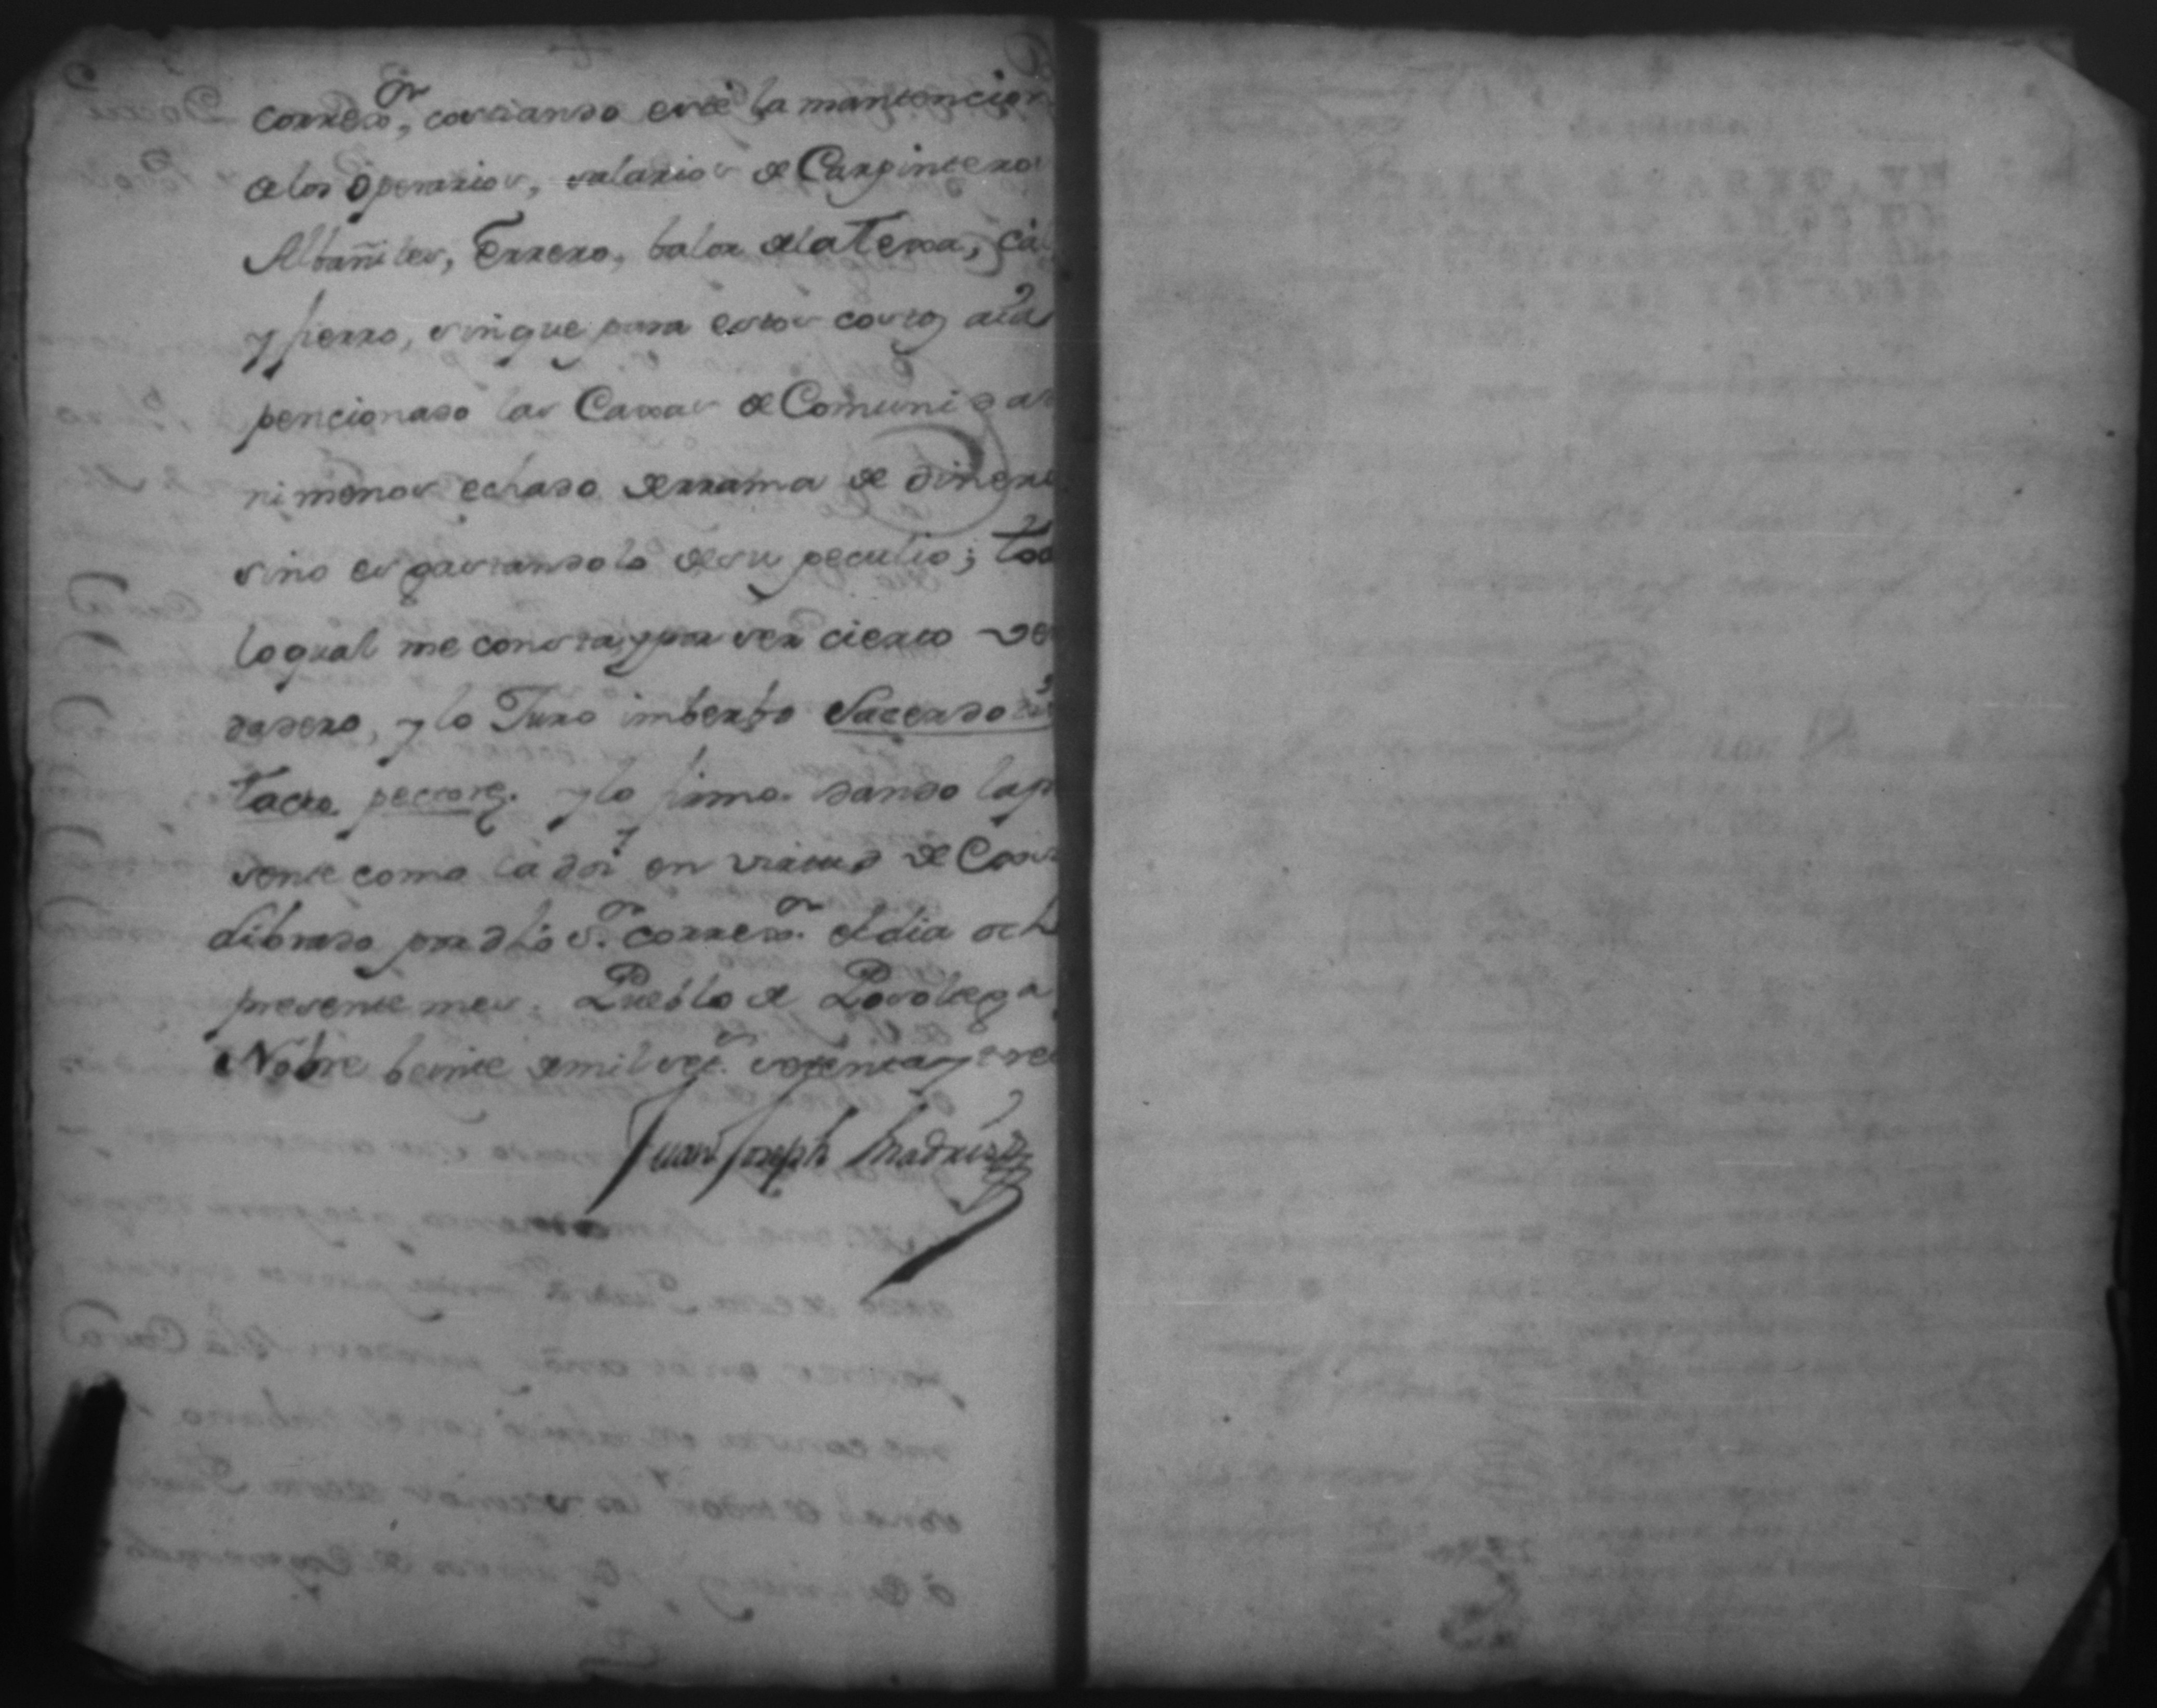 correg.or, costeando este la mantencion
de los operarios, salarios de Carpintero
Albañiles, Errero, balor de la Texa, cal
y fierro, sin que para estos costos aia
pencionado las Caxas de Comunidad
ni menos echado derrama de dinero
sino es gastandolo de su peculio; tod
lo qual me consta, y por ser cierto ver
dadero, y lo Juro imberbo Sacerdotis
tacto pectore. y lo firmo dando la p
sente como la doi en virtud de
Librado por dho S.r correg.or el dia och
presente mes. Pueblo de Posoltega
Nobre beinte de mil set.s setenta y tre
Juan Joseph Madris